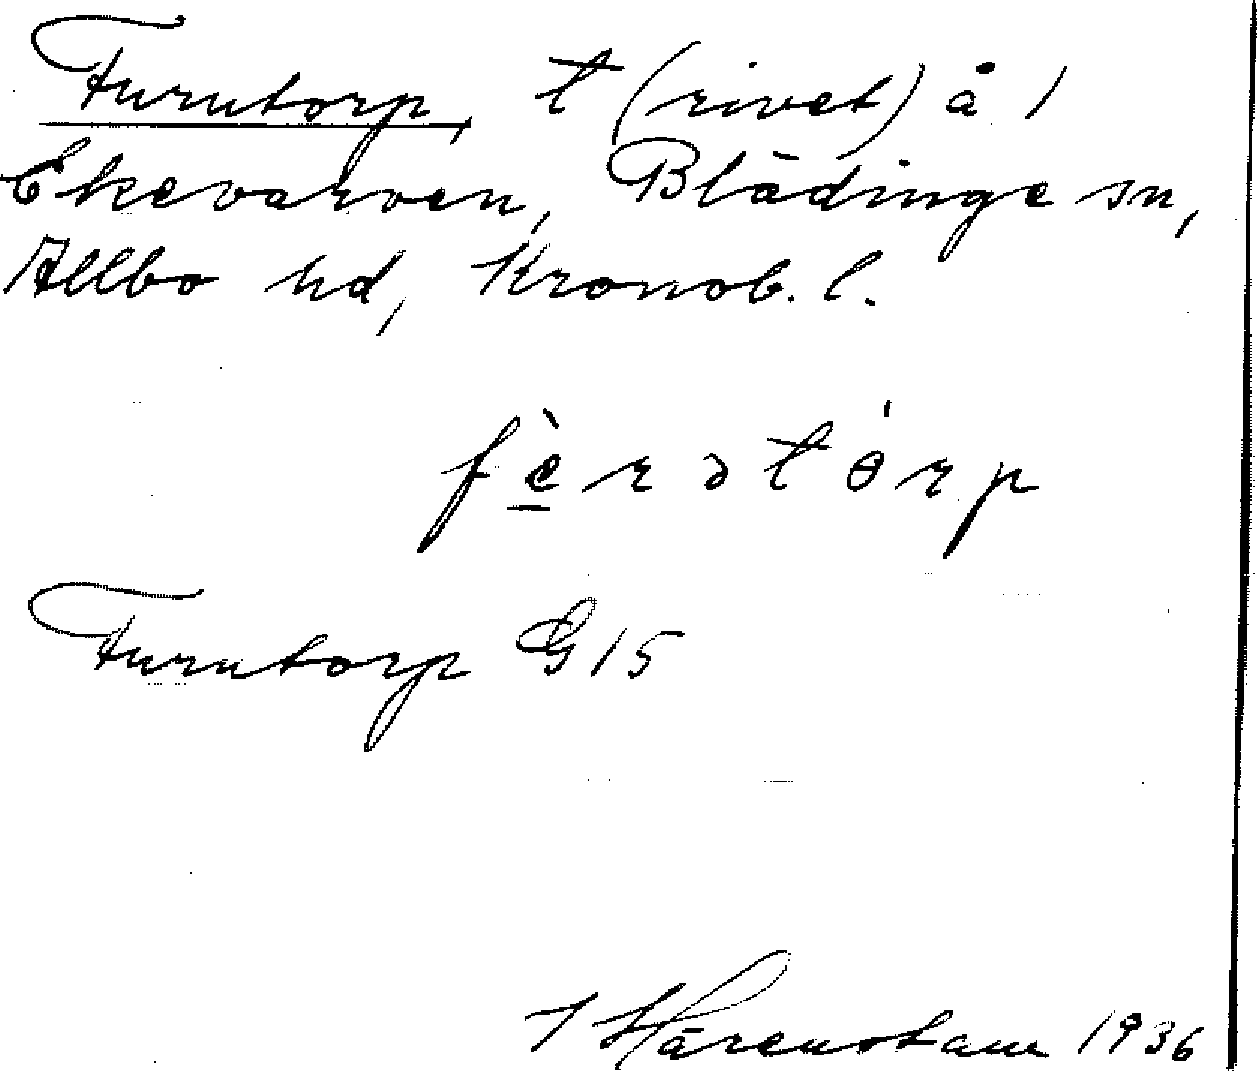 Furutorp, t (rivet) å 1
Ekevarven, Blädinge sn,
Allbo hd, Kronob. l.
fè̱rətɵ́rp
Furutorp G 15
Härenstam 1936